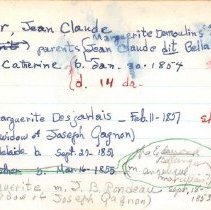 r, Jean Claude
Marguerite Demoulins
parents Jean Claude dit Bella
Catherine b. Jan. 30. 1854
(d. 14 da.
arguerite Desjarlais - Feb. 11-1857
(widow of Joseph Gagnon)
delaide b. Sept. 27-1858
b. Mar. 16-1858
(m. Angelique
uerite m. J. B. Rondeau Sept. 18-
dow of Joseph Gagnon)